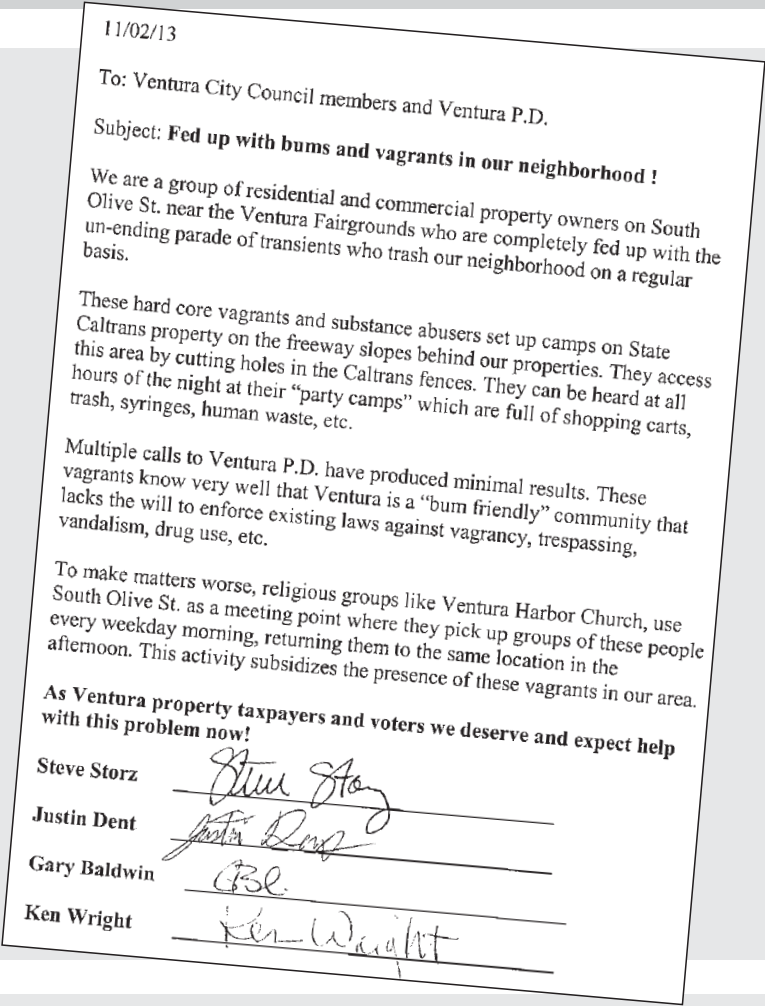 11/02/13
To: Ventura City Council members and Ventura P.D.
Subject: Fed up with bums and vagrants in our neighborhood !
We are a group of residential and commercial property owners on South
Olive St. near the Ventura Fairgrounds who are completely fed up with the
un-ending parade of transients who trash our neighborhood on a regular
basis.
These hard core vagrants and substance abusers set up camps on State
Caltrans property on the freeway slopes behind our properties. They access
this area by cutting holes in the Caltrans fences. They can be heard at all
hours of the night at their “party camps” which are full of shopping carts,
trash, syringes, human waste, etc.
Multiple calls to Ventura P.D. have produced minimal results. These
vagrants know very well that Ventura is a “bum friendly” community that
lacks the will to enforce existing laws against vagrancy, trespassing,
vandalism, drug use, etc.
To make matters worse, religious groups like Ventura Harbor Church, use
South Olive St. as a meeting point where they pick up groups of these people
every weekday morning, returning them to the same location in the
afternoon. This activity subsidizes the presence of these vagrants in our area.
As Ventura property taxpayers and voters we deserve and expect help
with this problem now!
Steve Storz Steve Storz
Justin Dent Justin
Gary Baldwin
Ken Wright Ken Wright